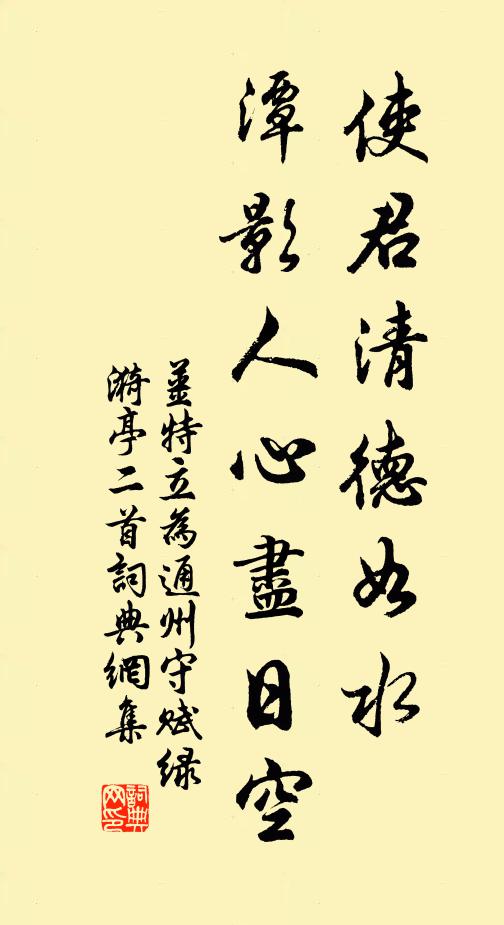 使君清德如水
潭影人心盡日空
姜特立為通州守賦緑
漪亭二首詞典網集
詞典网印